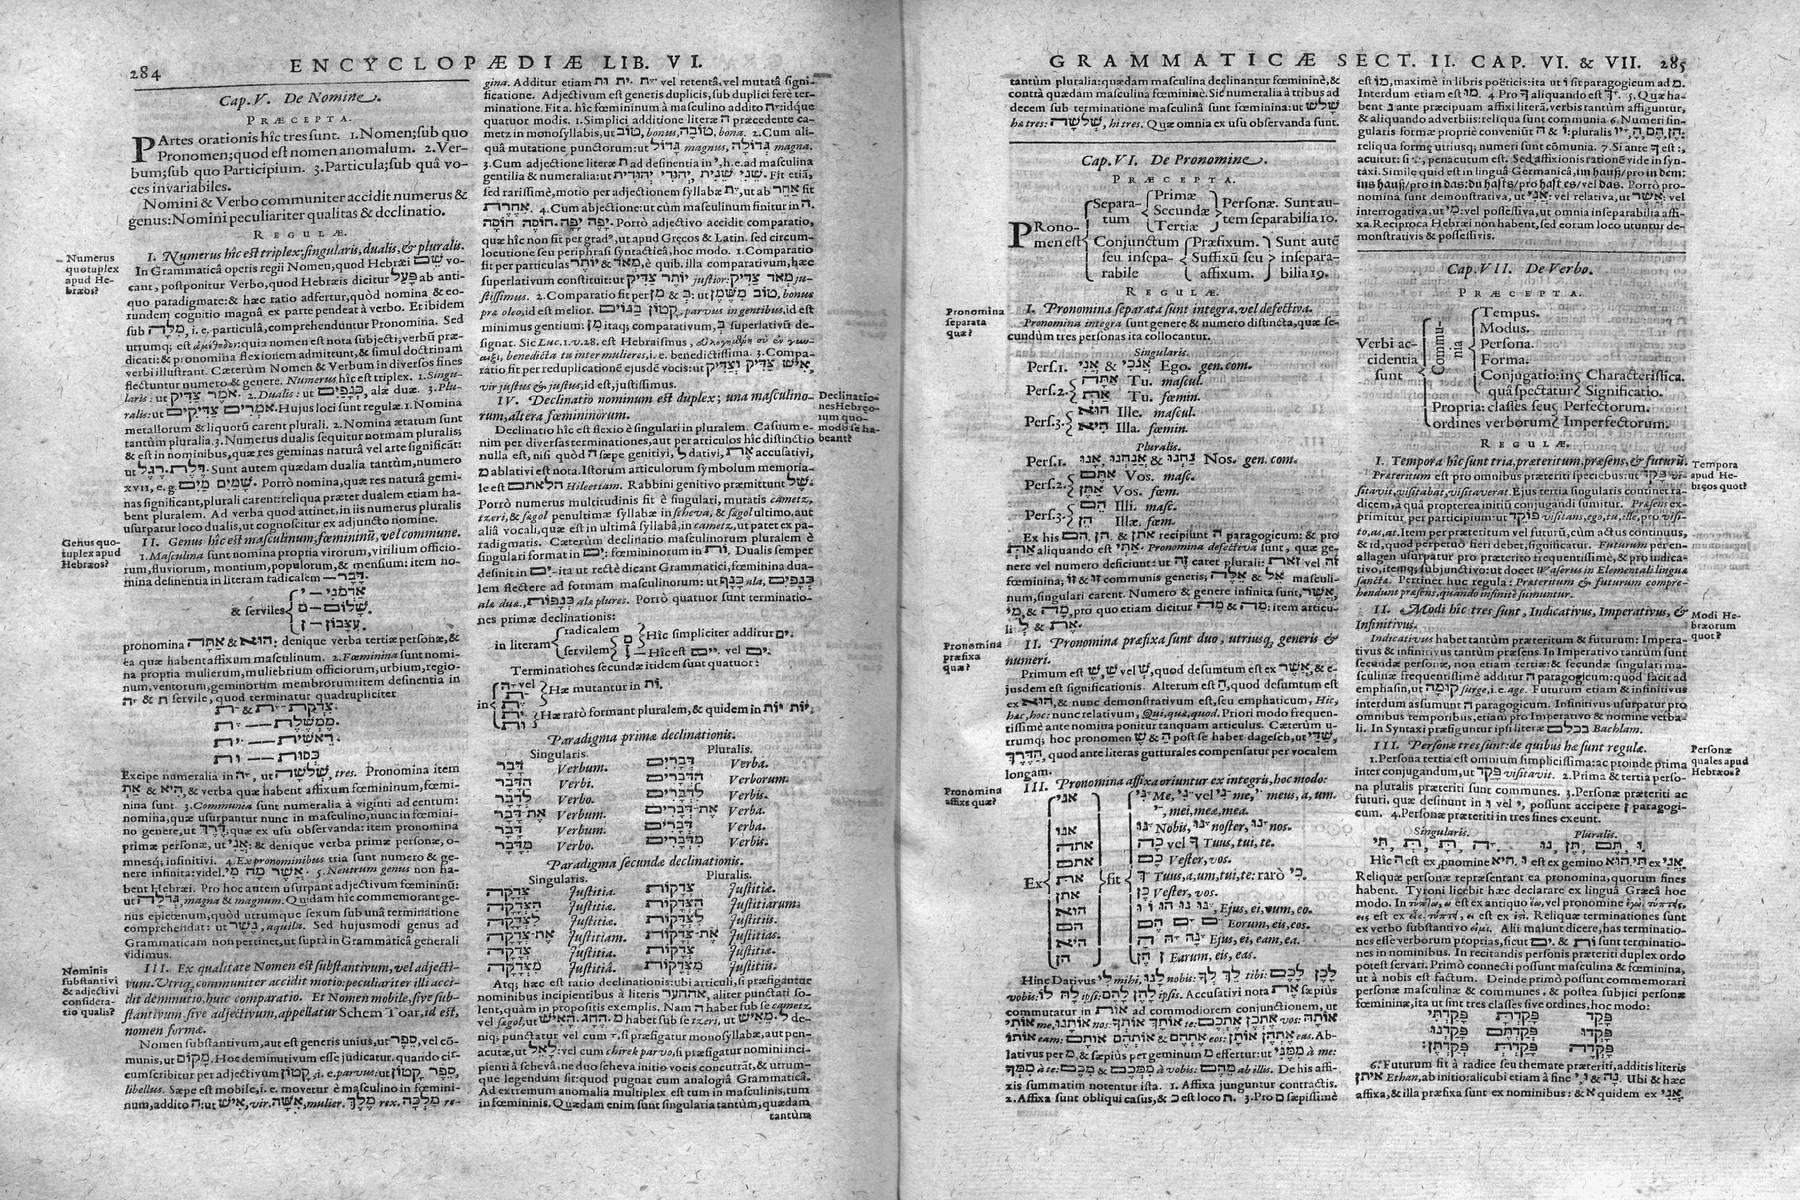 284
ENCYCLOPÆDIÆ LIB. VI.
Cap. V. De Nomine.
PRÆCEPTA.
PArtes orationis hîc tres sunt. 1. Nomen; sub quo
Pronomen; quod est nomen anomalum. 2. Ver-
bum; sub quo Participium. 3. Particula; sub quâ vo-
ces invariabiles.
Nomini & Verbo communiter accidit numerus &
genus: Nomini peculiariter qualitas & declinatio.
REGULÆ.
Numerus
quotuplex
apud He-
bræos?
I. Numerus hîc est triplex; singularis, dualis, & pluralis.
In Grammaticâ operis regii Nomen, quod Hebræi שֵׁם vo-
cant, postponitur Verbo, quod Hebræis dicitur פֹּעַל ab anti-
quo paradigmate: & hæc ratio adfertur, quòd nomina & eo-
rundem cognitio magnâ ex parte pendeat à verbo. Et ibidem
sub מלה, i. e. particulâ, comprehenduntur Pronomina. Sed
dicati: & pronomina flexionem admittunt, & simul doctrinam
verbi illustrant. Cæterùm Nomen & Verbum in diversos fines
flectuntur numero & genere. Numerus hîc est triplex. 1. Singu-
metallorum & liquorũ carent plurali. 2. Nomina ætatum sunt
tantùm pluralia. 3. Numerus dualis sequitur normam pluralis;
& est in nominibus, quæ res geminas naturâ vel arte significãt:
nas significant, plurali carent: reliqua præter dualem etiam ha-
bent pluralem. Ad verba quod attinet, in iis numerus pluralis
usurpatur loco dualis, ut cognoscitur ex adjuncto nomine.
Genus quo-
tuplex apud
Hebræos?
II. Genus hîc est masculinum, fœmininũ, vel commune.
1. Masculina sunt nomina propria virorum, virilium officio-
rum, fluviorum, montium, populorum, & mensium: item no-
mina desinentia in literam radicalem — דבר
& serviles
אדמני — י
שלום — ם
עצבון — ן
pronomina אתה & הוא: denique verba tertiæ personæ, &
ea quæ habent affixum masculinum. 2. Fœminina sunt nomi-
na propria mulierum, muliebrium officiorum, urbium, regio-
num, ventorum, geminorum membrorum: item desinentia in
Excipe numeralia in ה, ut שלשה, tres. Pronomina item
היא & את, & verba quæ habent affixum fœmininum, fœmi-
nina sunt. 3. Communia sunt numeralia à viginti ad centum:
nomina, quæ usurpantur nunc in masculino, nunc in fœmini-
no genere, ut דרך, quæ ex usu observanda: item pronomina
primæ personæ, ut אני; & denique verba primæ personæ, o-
mnesq; infinitivi. 4. Ex pronominibus tria sunt numero & ge-
nere infinita: videl. אשר מה מי. 5. Neutrum genus non ha-
bent Hebræi. Pro hoc autem usurpant adjectivum fœmininũ:
ut גדלה, magna & magnum. Quidam hîc commemorant ge-
nus epicœnum, quòd utrumque sexum sub unâ terminatione
comprehendat: ut נשר, aquila. Sed hujusmodi genus ad
Grammaticam non pertinet, ut suprà in Grammaticâ generali
vidimus.
Nominis
substantivi
& adjectivi
considera-
tio qualis?
III. Ex qualitate Nomen est substantivum, vel adjecti-
vum. Utriq; communiter accidit motio: peculiariter illi acci-
dit deminutio, huic comparatio. Et Nomen mobile, sive sub-
stantivum, sive adjectivum, appellatur Schem Toar, id est,
nomen formæ.
Nomen substantivum, aut est generis unius, ut ספר, vel cõ-
munis, ut מקום. Hoc deminutivum esse judicatur, quando cir-
cumscribitur per adjectivum קטון, i. e. parvus: ut ספר קטון,
libellus. Sæpe est mobile, i. e. movetur è masculino in fœmini-
num, addito ה: ut איש, vir, אשה, mulier. מלך rex. מלכה re-
gina. Additur etiam ית ות vel retentâ, vel mutatâ signi-
ficatione. Adjectivum est generis duplicis, sub duplici ferè ter-
minatione. Fit a. hîc fœmininum à masculino addito ה: idque
quatuor modis. 1. Simplici additione literæ ה præcedente ca-
metz in monosyllabis, ut טוב, bonus, טובה, bona. 2. Cum ali-
quâ mutatione punctorum: ut גדול magnus, גדולה, magna.
3. Cum adjectione literæ ת ad desinentia in י, h. e. ad masculina
gentilia & numeralia: ut שני שנית, יהודי יהודית. Fit etiã,
sed rarissimè, motio per adjectionem syllabæ ת, ut ab אחר fit
אחרת. 4. Cum abjectione: ut cùm masculinum finitur in ה.
יפה יפה. חוסה חוסה. Porrò adjectivo accidit comparatio,
quæ hîc non fit per gradꝰ, ut apud Grecos & Latin. sed circum-
locutione seu periphrasi syntacticâ, hoc modo. 1. Comparatio
fit per particulas יותר & מאד, è quib. illa comparativum, hæc
superlativum constituit: ut יותר צדיק justior: מאד צדיק ju-
stissimus. 2. Comparatio fit per מן & ב: ut טוב משמן, bonus
præ oleo, id est melior. קטון בגוים, parvus in gentibus, id est
minimus gentium: מן itaq; comparativum, ב superlativũ de-
signat. Sic Luc. 1. v. 28. est Hebraismus,
benedicta tu inter mulieres, i. e. benedictissima. 3. Compa-
ratio fit per reduplicationẽ ejusdẽ vocis: ut איש צדיק וצדיק,
vir justus & justus, id est, justissimus.
Declinatio-
nes Hebræo-
rum quo-
modo se ha-
beant?
IV. Declinatio nominum est duplex; una masculino-
rum, altera fœmininorum.
Declinatio hîc est flexio è singulari in pluralem. Casuum e-
nim per diversas terminationes, aut per articulos hîc distinctio
nulla est, nisi quòd ה sæpe genitivi, ל dativi, את accusativi,
מ ablativi est nota. Istorum articulorum symbolum memoria-
le est הלאתם Hileettam. Rabbini genitivo præmittunt של.
Porrò numerus multitudinis fit è singulari, mutatis cametz,
tzeri, & sagol penultimæ syllabæ in scheva, & sagol ultimo, aut
aliâ vocali, quæ est in ultimâ syllabâ, in cametz, ut patet ex pa-
radigmatis. Cæterùm declinatio masculinorum pluralem è
singulari format in ים: fœmininorum in ות. Dualis semper
desinit in ים— ita ut rectè dicant Grammatici, fœminina dua-
lem flectere ad formam masculinorum: ut כנף ala, כנפים
alæ duæ, כנפות, alæ plures. Porrò quatuor sunt terminatio-
nes primæ declinationis:
in literam
radicalem
servilem
Hîc simpliciter additur ים.
Hîc est ים. vel ים.
Terminationes secundæ itidem sunt quatuor:
in
Hæ mutantur in ות.
Hæ rarò formant pluralem, & quidem in יות ות.
Paradigma primæ declinationis.
Singularis. Pluralis.
דבר Verbum. דברים Verba.
הדבר Verbi. הדברים Verborum.
לדבר Verbo. לדברים Verbis.
את־דבר Verbum. את־דברים Verba.
דבר Verbum. דברים Verba.
מדבר Verbo. מדברים Verbis.
Paradigma secundæ declinationis.
Singularis. Pluralis.
צדקה Justitia. צדקות Justitiæ.
הצדקה Justitiæ. הצדקות Justitiarum.
לצדקה Justitiæ. לצדקות Justitiis.
את־צדקה Justitiam. את־צדקות Justitias.
צדקה Justitia. צדקות Justitiæ.
מצדקה Justitiâ. מצדקות Justitiis.
Atq; hæc est ratio declinationis: ubi articuli, si præfigantur
nominibus incipientibus à literis אהחער, aliter punctati so-
lent, quàm in propositis exemplis. Nam ה habet sub se cametz,
pienti à schevâ, ne duo scheva initio vocis concurrãt, & utrum-
que legendum sit: quod pugnat cum analogiâ Grammaticâ.
Ad extremum anomalia multiplex est tum in masculinis, tum
in fœmininis. Quædam enim sunt singularia tantùm, quædam
tantùm
GRAMMATICÆ SECT. II. CAP. VI. & VII. 285
tantùm pluralia: quædam masculina declinantur fœmininè, &
contrà quædam masculina fœmininè. Sic numeralia à tribus ad
decem sub terminatione masculinâ sunt fœminina: ut שלש
hæ tres: שלשה, hi tres. Quæ omnia ex usu observanda sunt.
Cap. VI. De Pronomine.
PRÆCEPTA.
PRono-
men est
Separa-
tum
Primæ
Secundæ
Tertiæ
Personæ. Sunt au-
tem separabilia 10.
Conjunctum
seu insepa-
rabile
Præfixum.
Suffixũ seu
affixum.
Sunt autẽ
insepara-
bilia 19.
REGULÆ.
Pronomina
separata
quæ?
I. Pronomina separata sunt integra, vel defectiva.
Pronomina integra sunt genere & numero distincta, quæ se-
cundùm tres personas ita collocantur.
Singularis.
Pers. 1. אני & אנכי Ego. gen. com.
Pers. 2. אתה Tu. mascul.
את Tu. fœmin.
Pers. 3. הוא Ille. mascul.
היא Illa. fœmin.
Pluralis.
Pers. 1. אנו, אנחנו & נחנו Nos. gen. com.
Pers. 2. אתם Vos. masc.
אתן Vos. fœm.
Pers. 3. הם Illi. masc.
הן Illæ. fœm.
Ex his הם, הן & אתן recipiunt ה paragogicum: & pro
את aliquando est אתי. Pronomina defectiva sunt, quæ ge-
nere vel numero deficiunt: ut זה caret plurali: זאת vel זה
fœminina; זו & זו communis generis; אלה & אל masculi-
num, singulari carent. Numero & genere infinita sunt, אשר,
מה, & מי, pro quo etiam dicitur מה & מה: item articu-
li ל & את.
Pronomina
præfixa
quæ?
II. Pronomina præfixa sunt duo, utriusq; generis &
numeri.
Primum est ש, ש vel ש, quod desumtum est ex אשר, & e-
jusdem est significationis. Alterum est ה, quod desumtum est
ex הוא, & nunc demonstrativum est, seu emphaticum, Hic,
hæc, hoc: nunc relativum, Qui, quæ, quod. Priori modo frequen-
tissimè ante nomina ponitur tanquam articulus. Cæterùm u-
trumq; hoc pronomen ש & ה post se habet dagesch, ut שדי,
הדרך, quod ante literas gutturales compensatur per vocalem
longam.
Pronomina
affixa quæ?
III. Pronomina affixa oriuntur ex integris, hoc modo:
Ex
אני
אנו
אתה
אתם
את
אתן
הוא
הם
היא
fit
Me, vel me, meus, a, um.
mei, meæ, mea.
Nobis, noster, nos.
vel ך Tuus, tui, te.
כם Vester, vos.
ך Tuus, a, um, tui, te: rarò כי.
כן Vester, vos.
Ejus, ei, eum, eo.
Eorum, eis, eos.
Ejus, ei, eam, ea.
הן ן Earum, eis, eas.
Hinc Dativus לי mihi, לנו nobis: לך לך tibi: לכן לכם
vobis: לו לה ipsi: להן להם ipsis. Accusativi nota את sæpius
commutatur in אות ad commodiorem conjunctionem, ut
אותי me, אותנו nos: אותך אותך te: אתכם אתכן vos: אותה
אותו eam: אותם אתהם & אותן אתהן eos: eas. Ab-
lativus per מ, & sæpius per geminum מ effertur: ut ממני à me:
ממך à te: מכם & מכן à vobis: מהם ab illis. De his affi-
xis summatim notentur ista. 1. Affixa junguntur contractis.
2. Affixa sunt obliqui casus, & כ est loco ת. 3. Pro ם sæpissimè
est מו, maximè in libris poëticis: ita ut ו sit paragogicum ad ם.
Interdum etiam est מו. 4. Pro ך aliquando est ך. 5. Quæ ha-
bent נ ante præcipuam affixi literã, verbis tantùm affiguntur,
& aliquando adverbiis: reliqua sunt communia. 6. Numeri sin-
gularis formæ propriè conveniũt ה & ו: pluralis הן, הם, ה, יו:
reliqua formę utriusq; numeri sunt cõmunia. 7. Si ante ך est :,
acuitur: si ·:·, penacutum est. Sed affixionis rationẽ vide in syn-
taxi. Simile quid est in linguâ Germanicâ, im hauß/ pro in dem:
ins hauß/ pro in das: du hasts/ pro hast es/ vel das. Porrò pro-
nomina sunt demonstrativa, ut אני: vel relativa, ut אשר: vel
interrogativa, ut מי: vel possessiva, ut omnia inseparabilia affi-
xa. Reciproca Hebræi non habent, sed eorum loco utuntur de-
monstrativis & possessivis.
Cap. VII. De Verbo.
PRÆCEPTA.
Verbi ac-
cidentia
sunt
Commu-
nia
Tempus.
Modus.
Persona.
Forma.
Conjugatio: in
quâ spectatur
Characteristica.
Significatio.
Propria: classes seu
ordines verborum
Perfectorum.
Imperfectorum.
REGULÆ.
Tempora
apud He-
bręos quot?
I. Tempora hîc sunt tria, præteritum, præsens, & futurũ.
Præteritum est pro omnibus præteriti speciebus: ut פקד vi-
sitavit, visitabat, visitaverat. Ejus tertia singularis continet ra-
dicem, à quâ propterea initiũ conjugandi sumitur. Præsens ex-
primitur per participium: ut פוקד visitans, ego, tu, ille, pro visi-
to, as, at. Item per præteritum vel futurũ, cùm actus continuus,
& id, quod perpetuò fieri debet, significatur. Futurum per en-
allagen usurpatur pro præterito frequentissimè, & pro indica-
tivo, itemq; subjunctivo: ut docet Waserus in Elementali linguæ
sanctæ. Pertinet huc regula: Præteritum & futurum compre-
hendunt præsens, quando infinitè sumuntur.
Modi He-
bræorum
quot?
II. Modi hîc tres sunt, Indicativus, Imperativus, &
Infinitivus.
Indicativus habet tantùm præteritum & futurum: Impera-
tivus & infinitivus tantùm præsens. In Imperativo tantùm sunt
secundæ personæ, non etiam tertiæ: & secundæ singulari ma-
sculinæ frequentissimè additur ה paragogicum: quod facit ad
emphasin, ut קומה surge, i. e. age. Futurum etiam & infinitivus
interdum assumunt ה paragogicum. Infinitivus usurpatur pro
omnibus temporibus, etiam pro Imperativo & nomine verba-
li. In Syntaxi præfiguntur ipsi literæ בכלם Bachlam.
Personæ
quales apud
Hebræos?
III. Personæ tres sunt: de quibus hæ sunt regulæ.
1. Persona tertia est omnium simplicissima: ac proinde prima
inter conjugandum, ut פקד visitavit. 2. Prima & tertia perso-
na pluralis præteriti sunt communes. 3. Personæ præteriti ac
futuri, quæ desinunt in ו vel י, possunt accipere ן paragogi-
cum. 4. Personæ præteriti in tres fines exeunt.
Singularis. Pluralis.
Reliquæ personæ repræsentant ea pronomina, quorum fines
habent. Tyroni licebit hæc declarare ex linguâ Græcâ hoc
ex verbo substantivo εἰμι. Alii malunt dicere, has terminatio-
nes esse verborum proprias, sicut ים & ות sunt terminatio-
nes in nominibus. In recitandis personis præteriti duplex ordo
potest servari. Primò connecti possunt masculina & fœminina,
ut à nobis est factum. Deinde primò possunt commemorari
personæ masculinæ & communes, & postea subjici personæ
fœmininæ, ita ut sint tres classes sive ordines, hoc modo:
פקד פקדת פקדתי
פקדו פקדתם פקדנו
פקדה פקדת פקדתן:
6. Futurum fit à radice seu themate præteriti, additis literis
איתן Ethan, ab initio: alicubi etiam à fine י, ו & נה. Ubi & hæc
affixa, & illa præfixa sunt ex nominibus: & א quidem ex אני